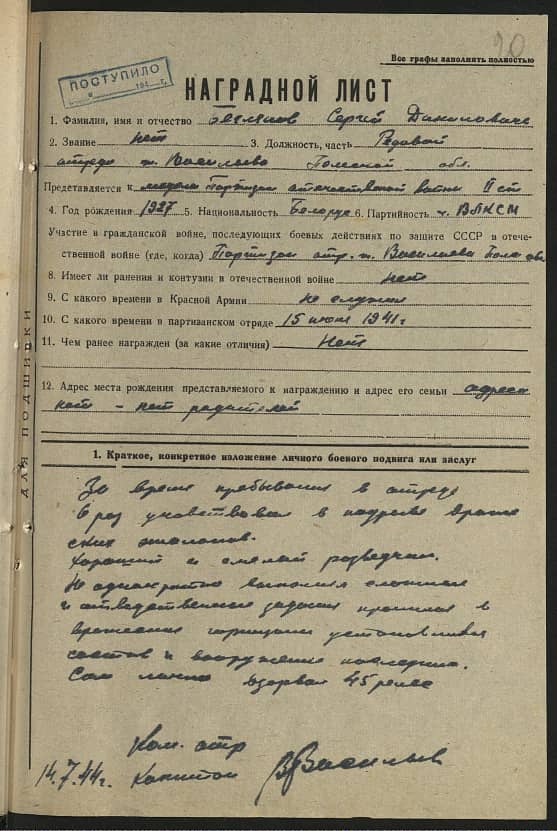 20
Все графы заполнить полностью
ПОСТУПИЛО
194 г.
НАГРАДНОЙ ЛИСТ
1. Фамилия, имя и отчество Сергей Данилович
2. Звание нет 3. Должность, часть Рядовой
отряда т. Васильева обл.
Представляется к медали Партизан отечественной войны II ст
4. Год рождения 1927 5. Национальность Белорус 6. Партийность ч. ВЛКСМ
Участие в гражданской войне, последующих боевых действиях по защите СССР в отече-
ственной войне (где, когда) Партизан отр. т. Васильева
8. Имеет ли ранения и контузии в отечественной войне нет
9. С какого времени в Красной Армии не служил
10. С какого времени в партизанском отряде 15 июля 1941 г
11. Чем ранее награжден (за какие отличия) Нет
12. Адрес места рождения представляемого к награждению и адрес его семьи адреса
нет - нет родителей
1. Краткое, конкретное изложение личного боевого подвига или заслуг
За время пребывания в отряде
6 раз участвовал в подрыве враже
ских эшалонов.
Хороший и смелый разведчик.
Не однократно выполнял сложные
и ответственные задания проникал в
вражеские гарнизоны устанавливал
состав и вооружение последних.
Сам лично взорвал 45 рельс
Ком. отр
14.7.44 г. Капитан Васильев
ДЛЯ ПОДШИВКИ